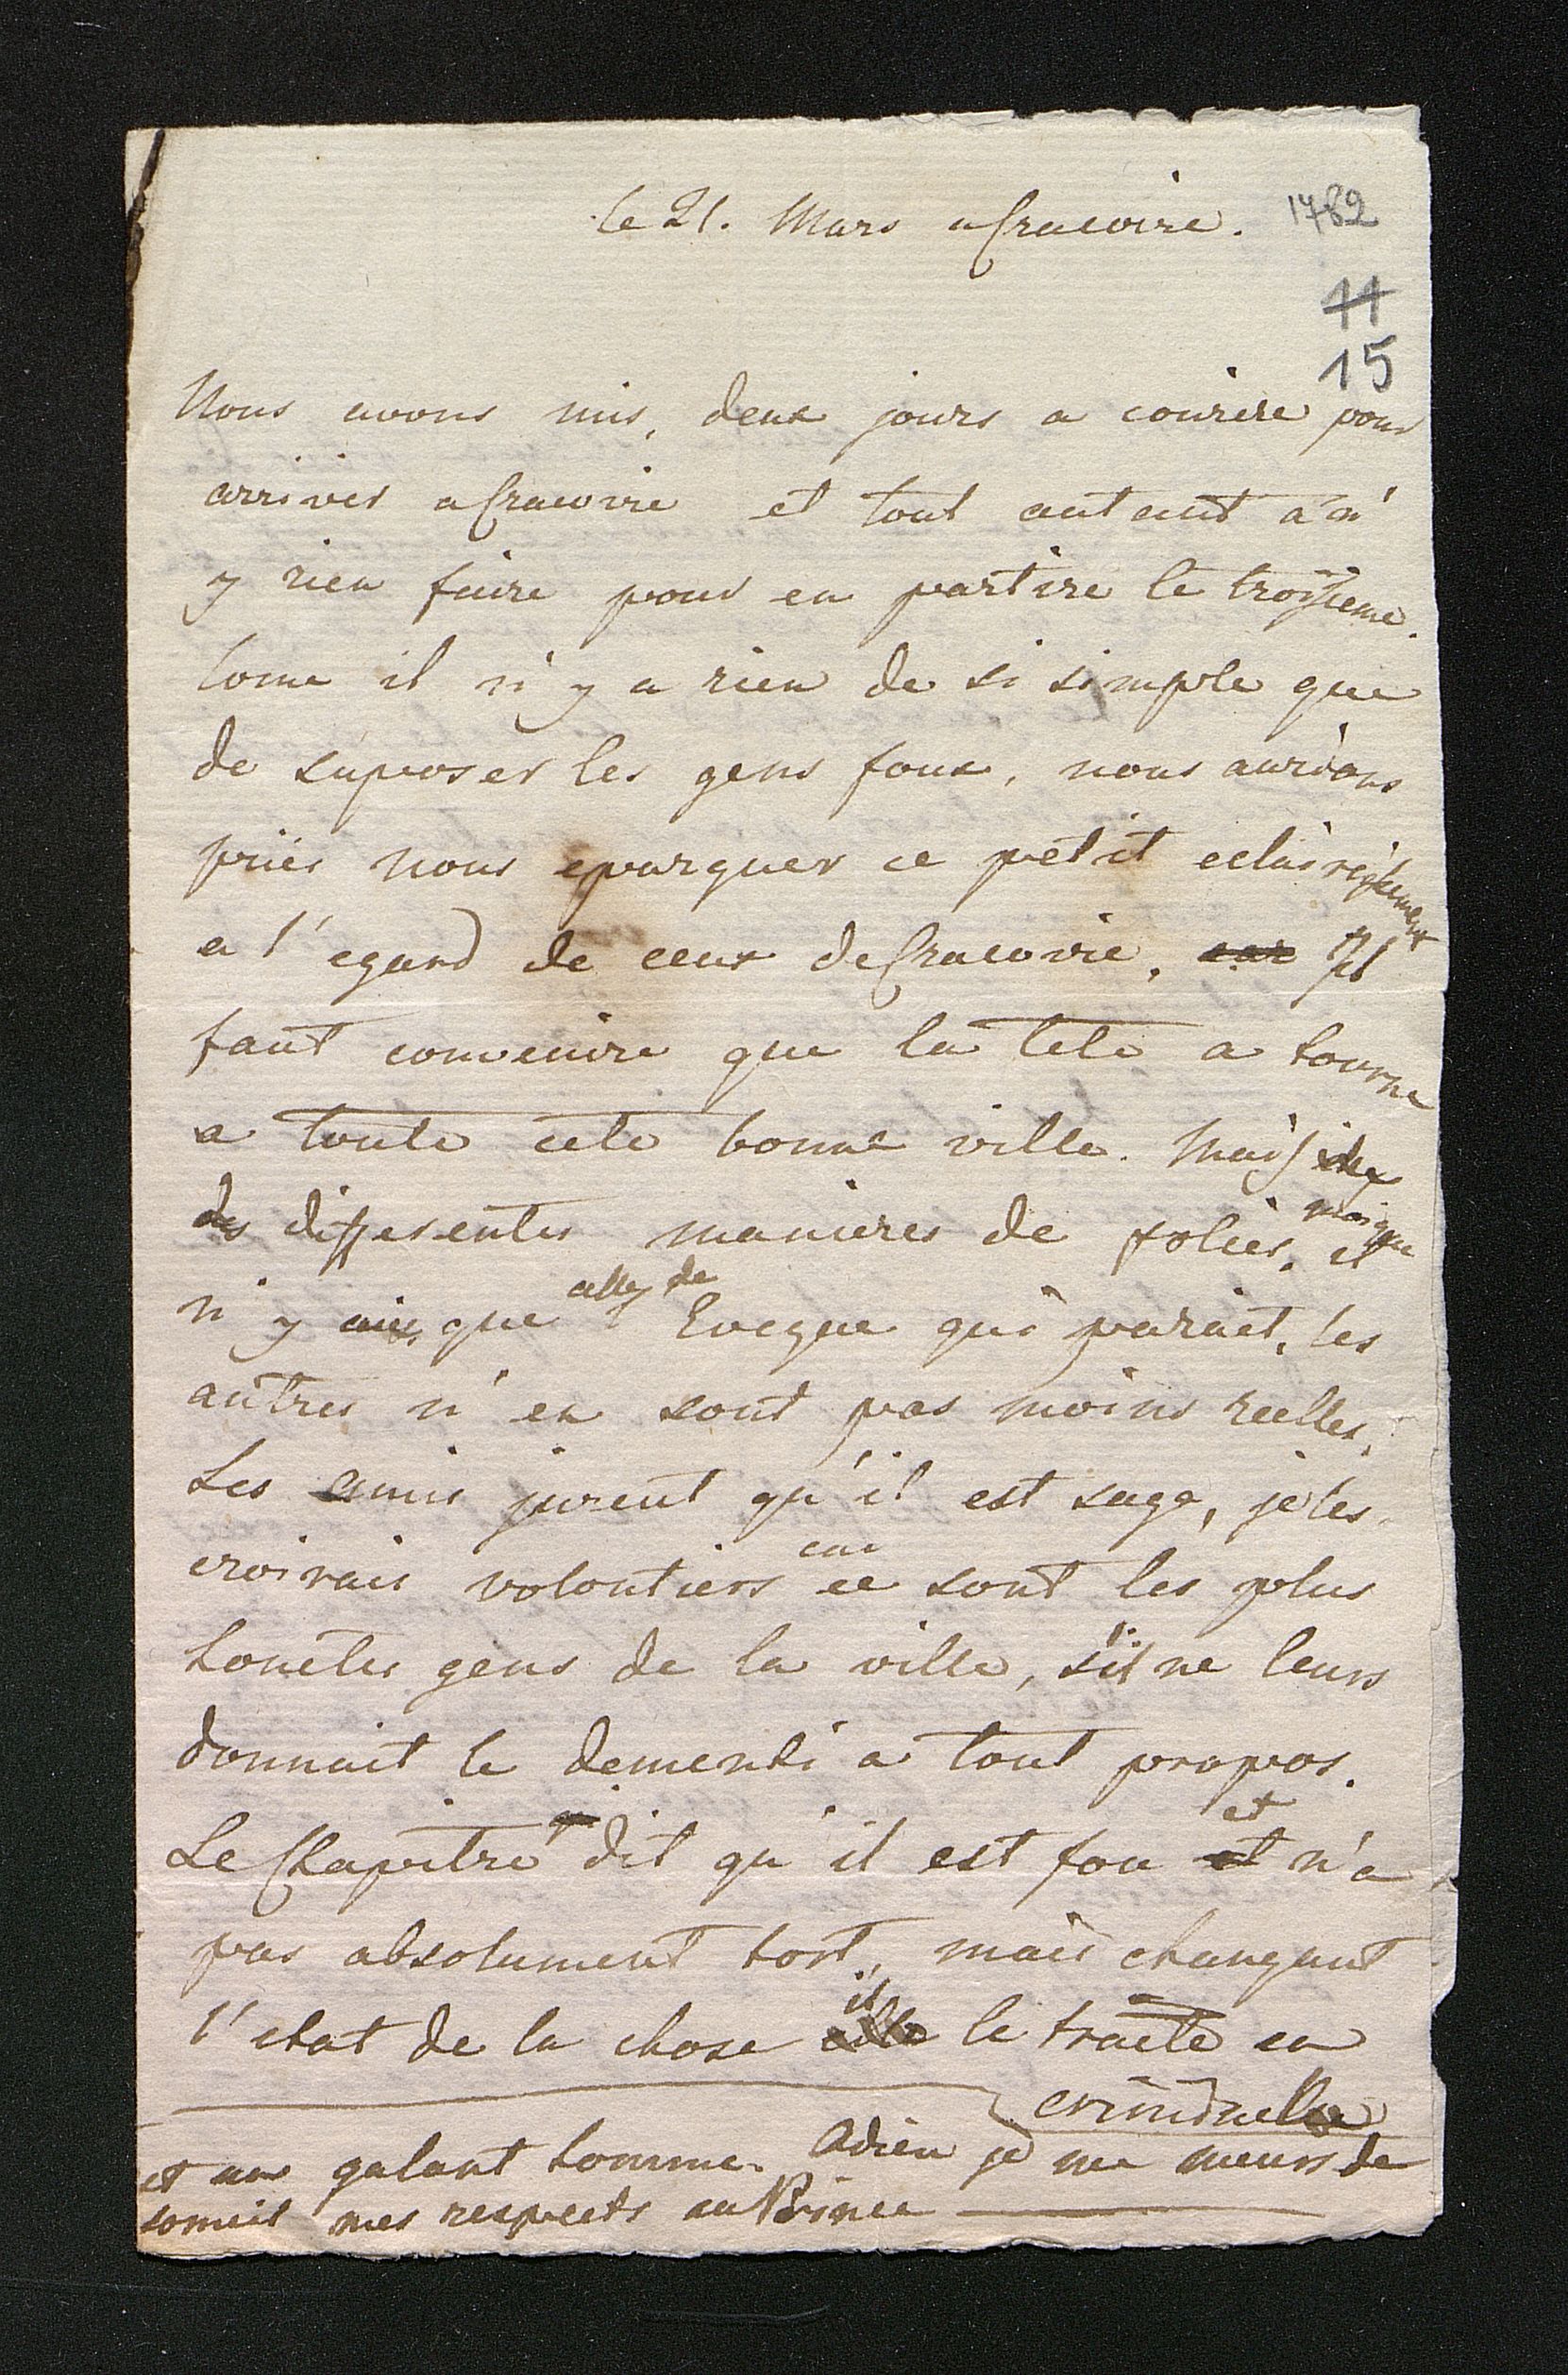 le 21. Mars a Cracovie. 1782
11
15
Nous avons mis, deux jours a courire pour
arriver a Cracovie et tout autant a n'
y rien faire pour en partire le troisieme.
Come il n'y a rien de si simple que
de suposer les gens foux, nous aurions
pües nous epargner ce petit eclairsisement
a l'egard de ceux de Cracovie, car Il
faut convenire que la tete a tourne
a toute cete bonne ville. Mais
des differentes manieres de folies, il
n'y que celle de Eveque qui parait, les
autres n'en sont pas moins reelles.
Les amis jurent qu'il est sage, je les
croirais volontiers car ce sont les plus
honetes gens de la ville, s'il ne leurs
donnait le dementi a tout propos.
Le Chapitre dit qu'il est fou et n'a
pas absolument tort, mais changant
l'etat de la chose il le traite en
criminelle
et un galant homme. Adieu je me meurs de
someil mes respects au Prince